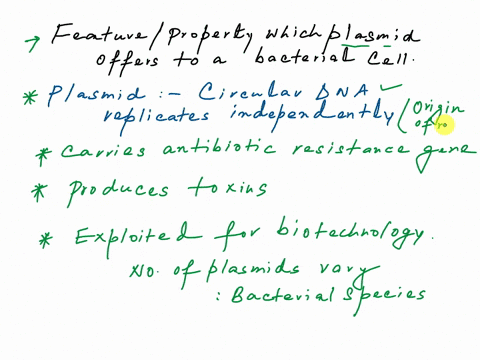 → Feature/Property which plasmid
offers to a bacterial cell.
* Plasmid :- Circular DNA ✓
replicates independently (Origin
of ro
* Carries antibiotic resistance gene
* Produces toxins
* Exploited for biotechnology.
No. of plasmids vary
: Bacterial Species